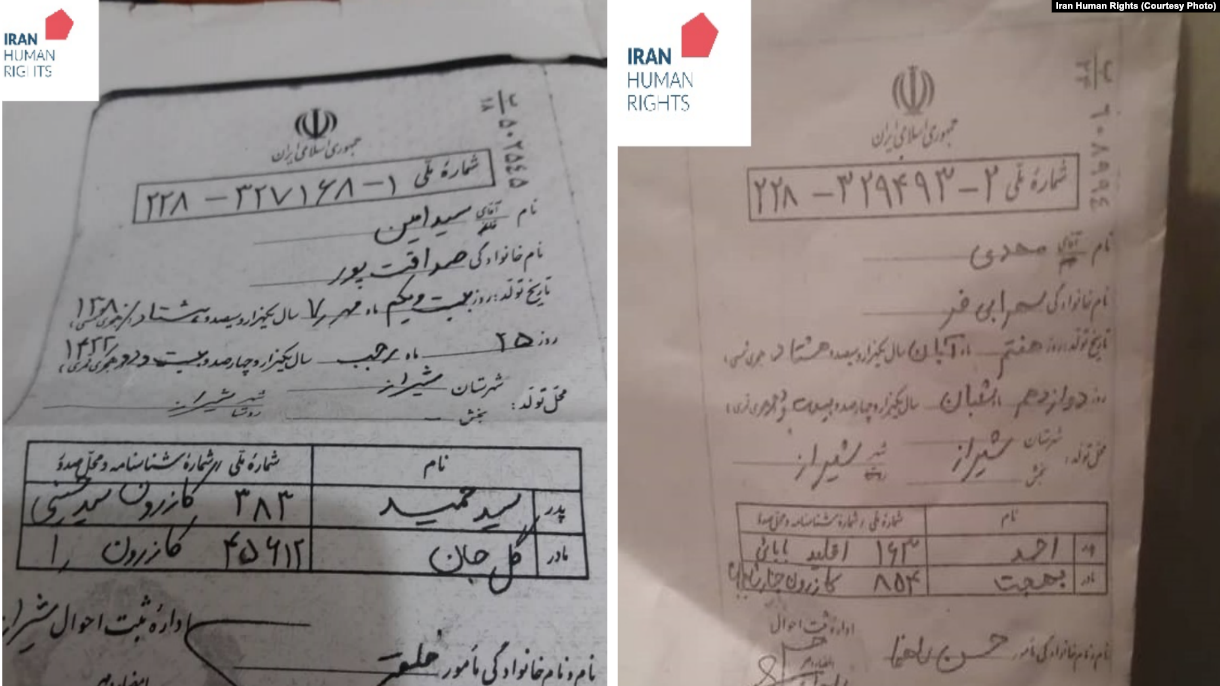 Iran Human Rights (Courtesy Photo)
IRAN
HUMAN
RIGHTS
جمهوری اسلامی ایران
شمارهٔ ملی ۱-۳۲۷۱۶۸-۲۲۸
نام آقای سید امین
نام خانوادگی صداقت پور
تاریخ تولد: روز بیست و یکم ماه مهر ۷ سال یکهزار و سیصد و هشتاد ۱۳۸۰ هجری شمسی
روز ۲۵ ماه رجب سال یکهزار و چهارصد و بیست و دو ۱۴۲۲ هجری قمری
محل تولد: شهرستان شیراز شهر شیراز
بخش روستا
نام شمارهٔ ملی / شمارهٔ شناسنامه و محل صدور
پدر سید حمید ۳۸۳ کازرون
مادر گل جان ۴۵۶۱۲ کازرون
ادارهٔ ثبت احوال شیراز
نام و نام خانوادگی مأمور
IRAN
HUMAN
RIGHTS
جمهوری اسلامی ایران
شمارهٔ ملی ۲-۳۲۹۴۹۳-۲۲۸
نام آقای مهدی
نام خانوادگی سهرابی فر
تاریخ تولد: روز هفتم ماه آبان سال یکهزار و سیصد و هشتاد هجری شمسی
روز دوازدهم ماه شعبان سال یکهزار و چهارصد و بیست و دو هجری قمری
محل تولد: شهرستان شیراز شهر شیراز
بخش
نام شمارهٔ ملی / شمارهٔ شناسنامه و محل صدور
پدر احمد ۱۶۳ اقلید بابائی
مادر بهجت ۸۵۴ کازرون
ادارهٔ ثبت احوال
نام و نام خانوادگی مأمور حسن